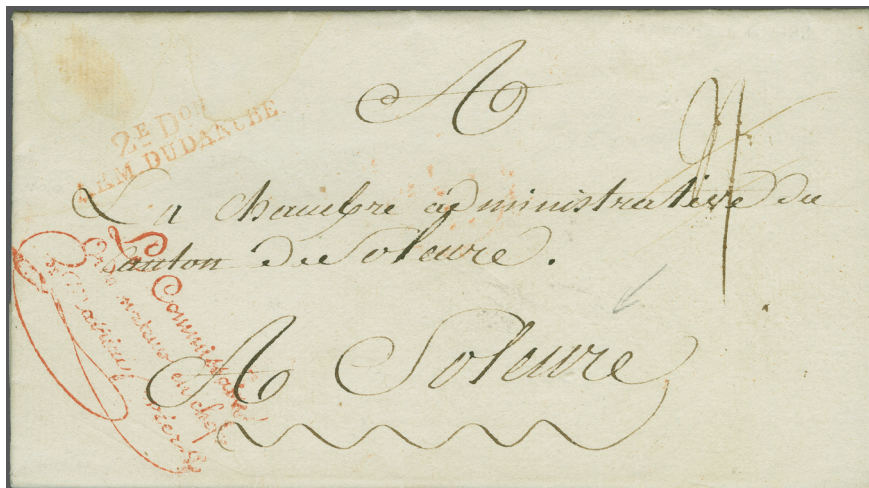 A
2E Don
ARM DU DANUBE
La Chambre administrative du
Canton de Soleure.
Le Commissaire
en chef
A Soleure